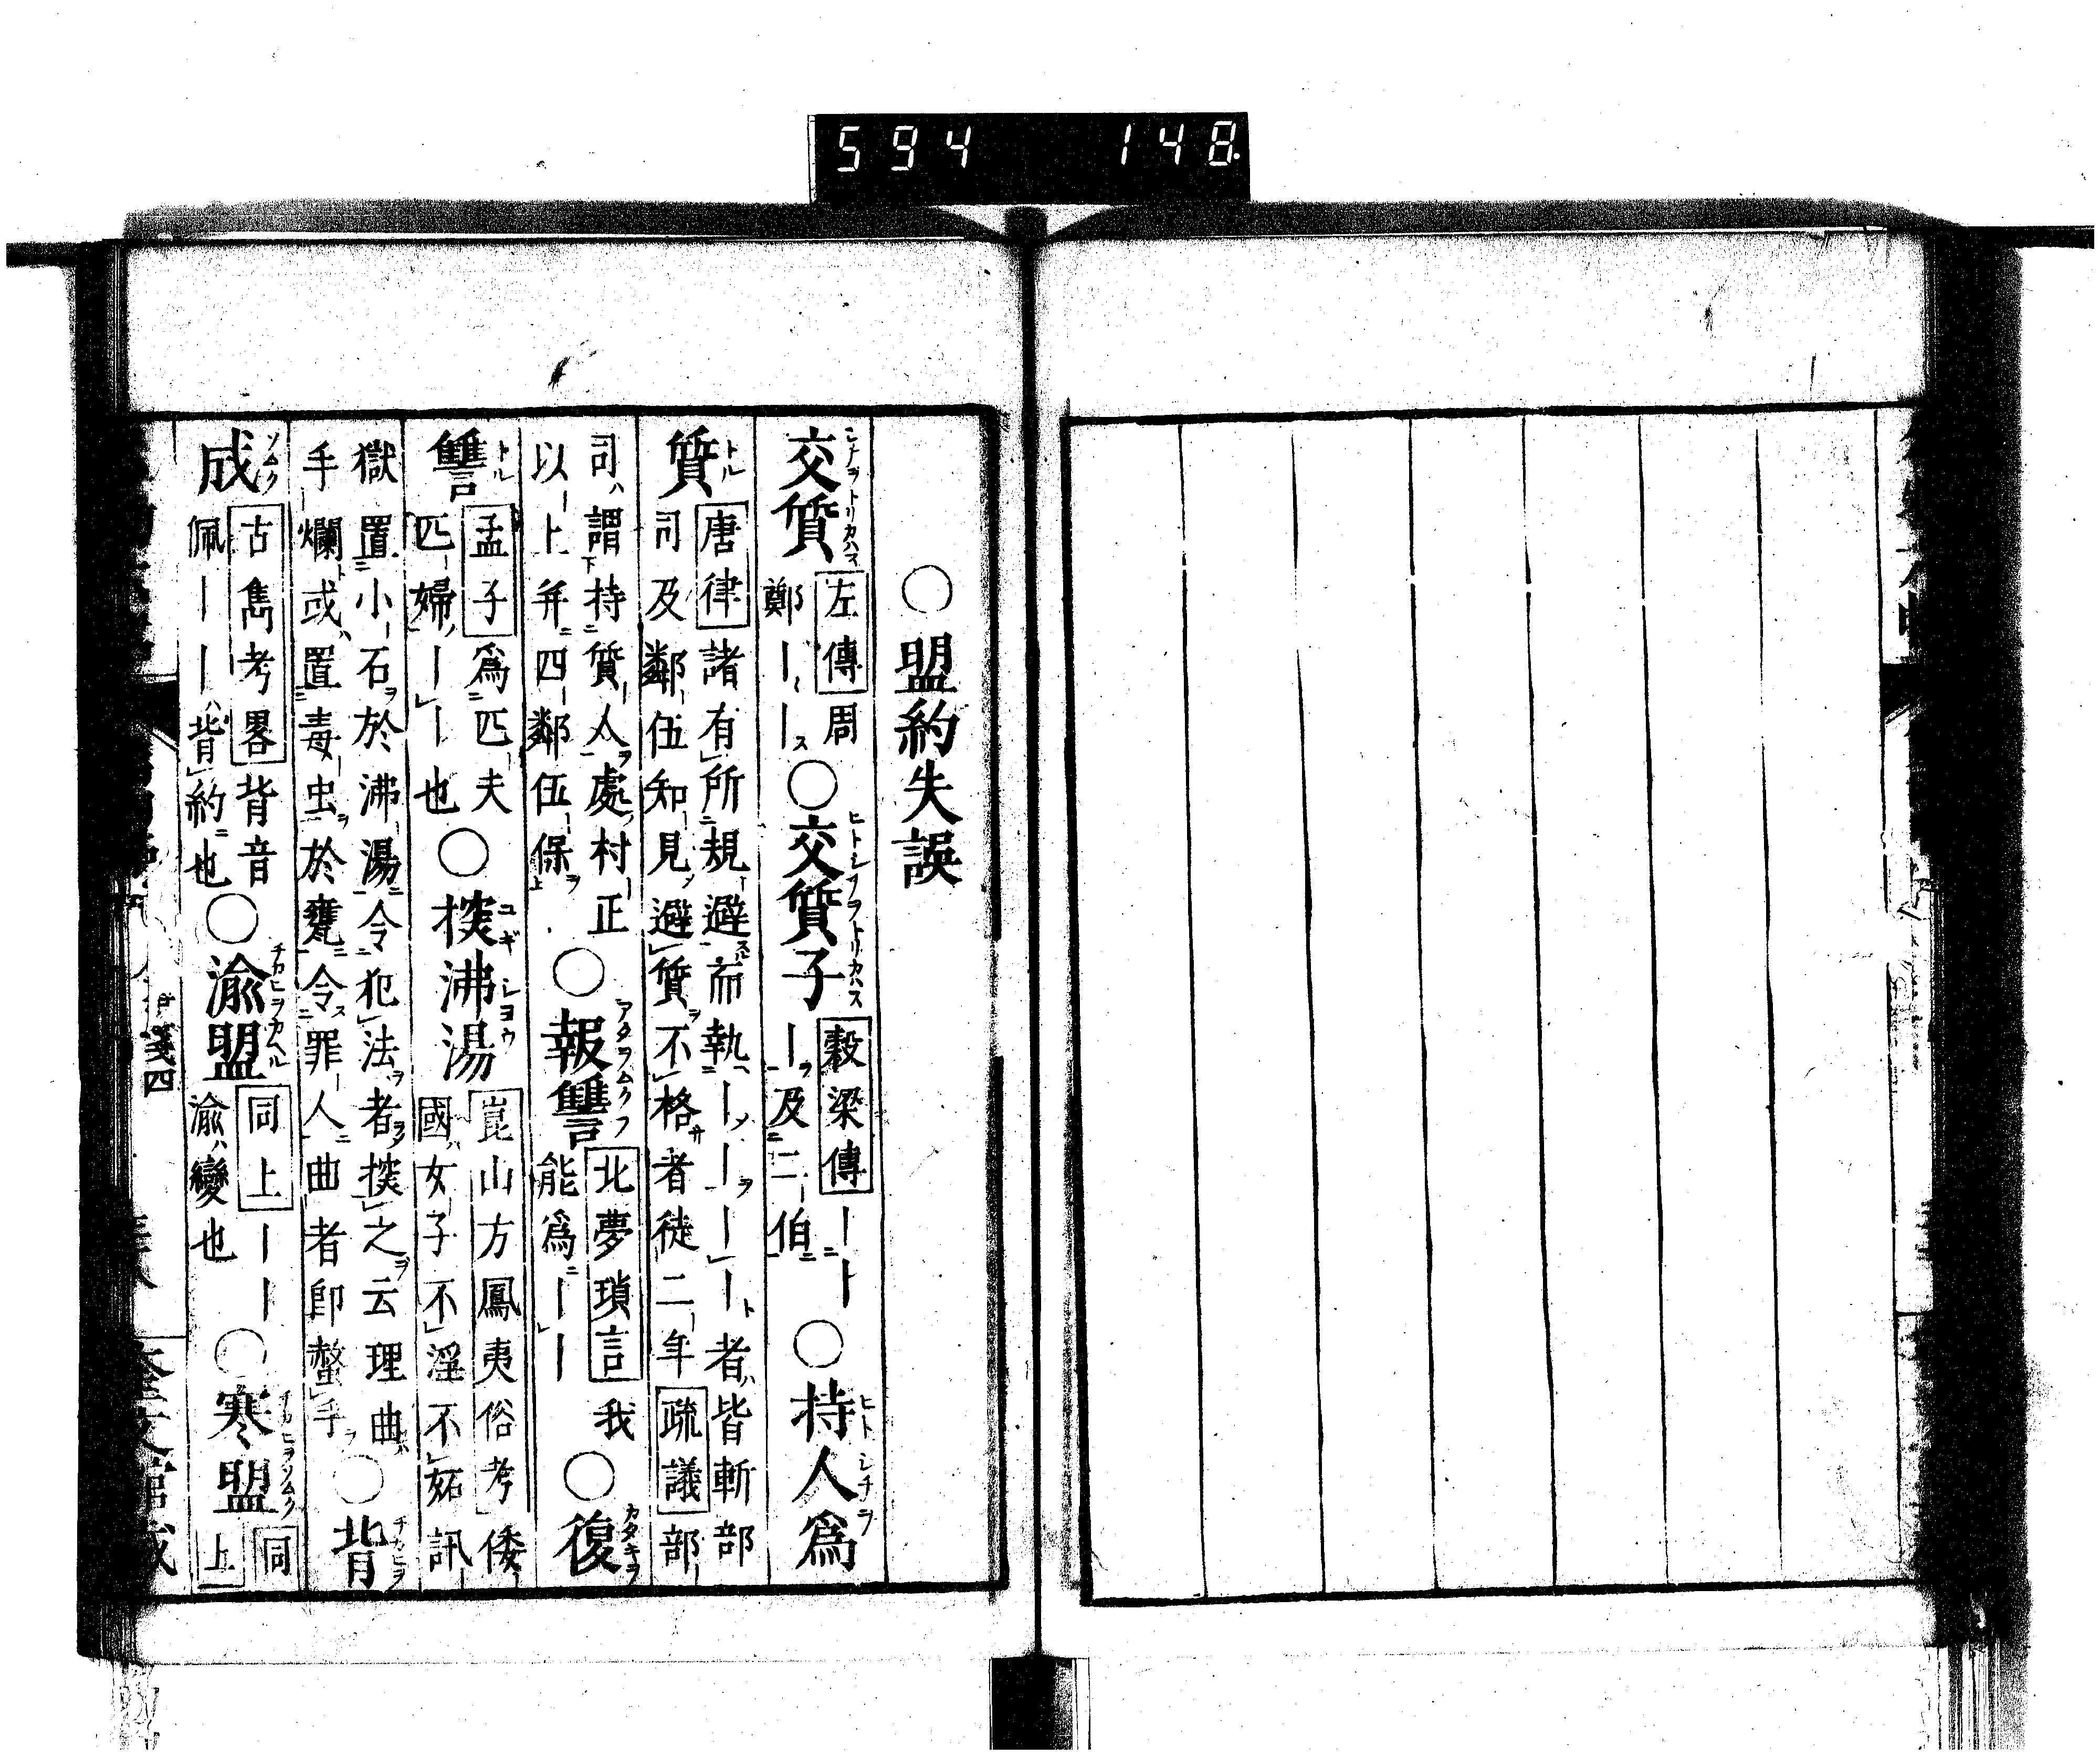 594 148
○盟約失誤
交質 左傳 周鄭｜｜ス ○交質子 穀梁傳 ｜｜｜ヲ及二伯 ○持人爲
質 唐律 諸有所規避而執｜｜｜｜者皆斬部
司及鄰伍知見避質不格者徒二年 疏議 部
司謂持質人處村正
以上并四鄰伍保 ○報讐 北夢瑣言 我能爲｜｜ ○復
讐 孟子 爲匹夫匹婦｜｜也 ○掞沸湯 崑山方鳳夷俗考 倭國女子不淫不妬訊
獄置小石於沸湯令犯法者掞之云理曲
手爛或置毒虫於甕令罪人曲者卽螫手 ○背
成 古雋考畧 背音佩｜｜｜背約也 ○渝盟 同上 ｜｜渝變也 ○寒盟 同上
箋四